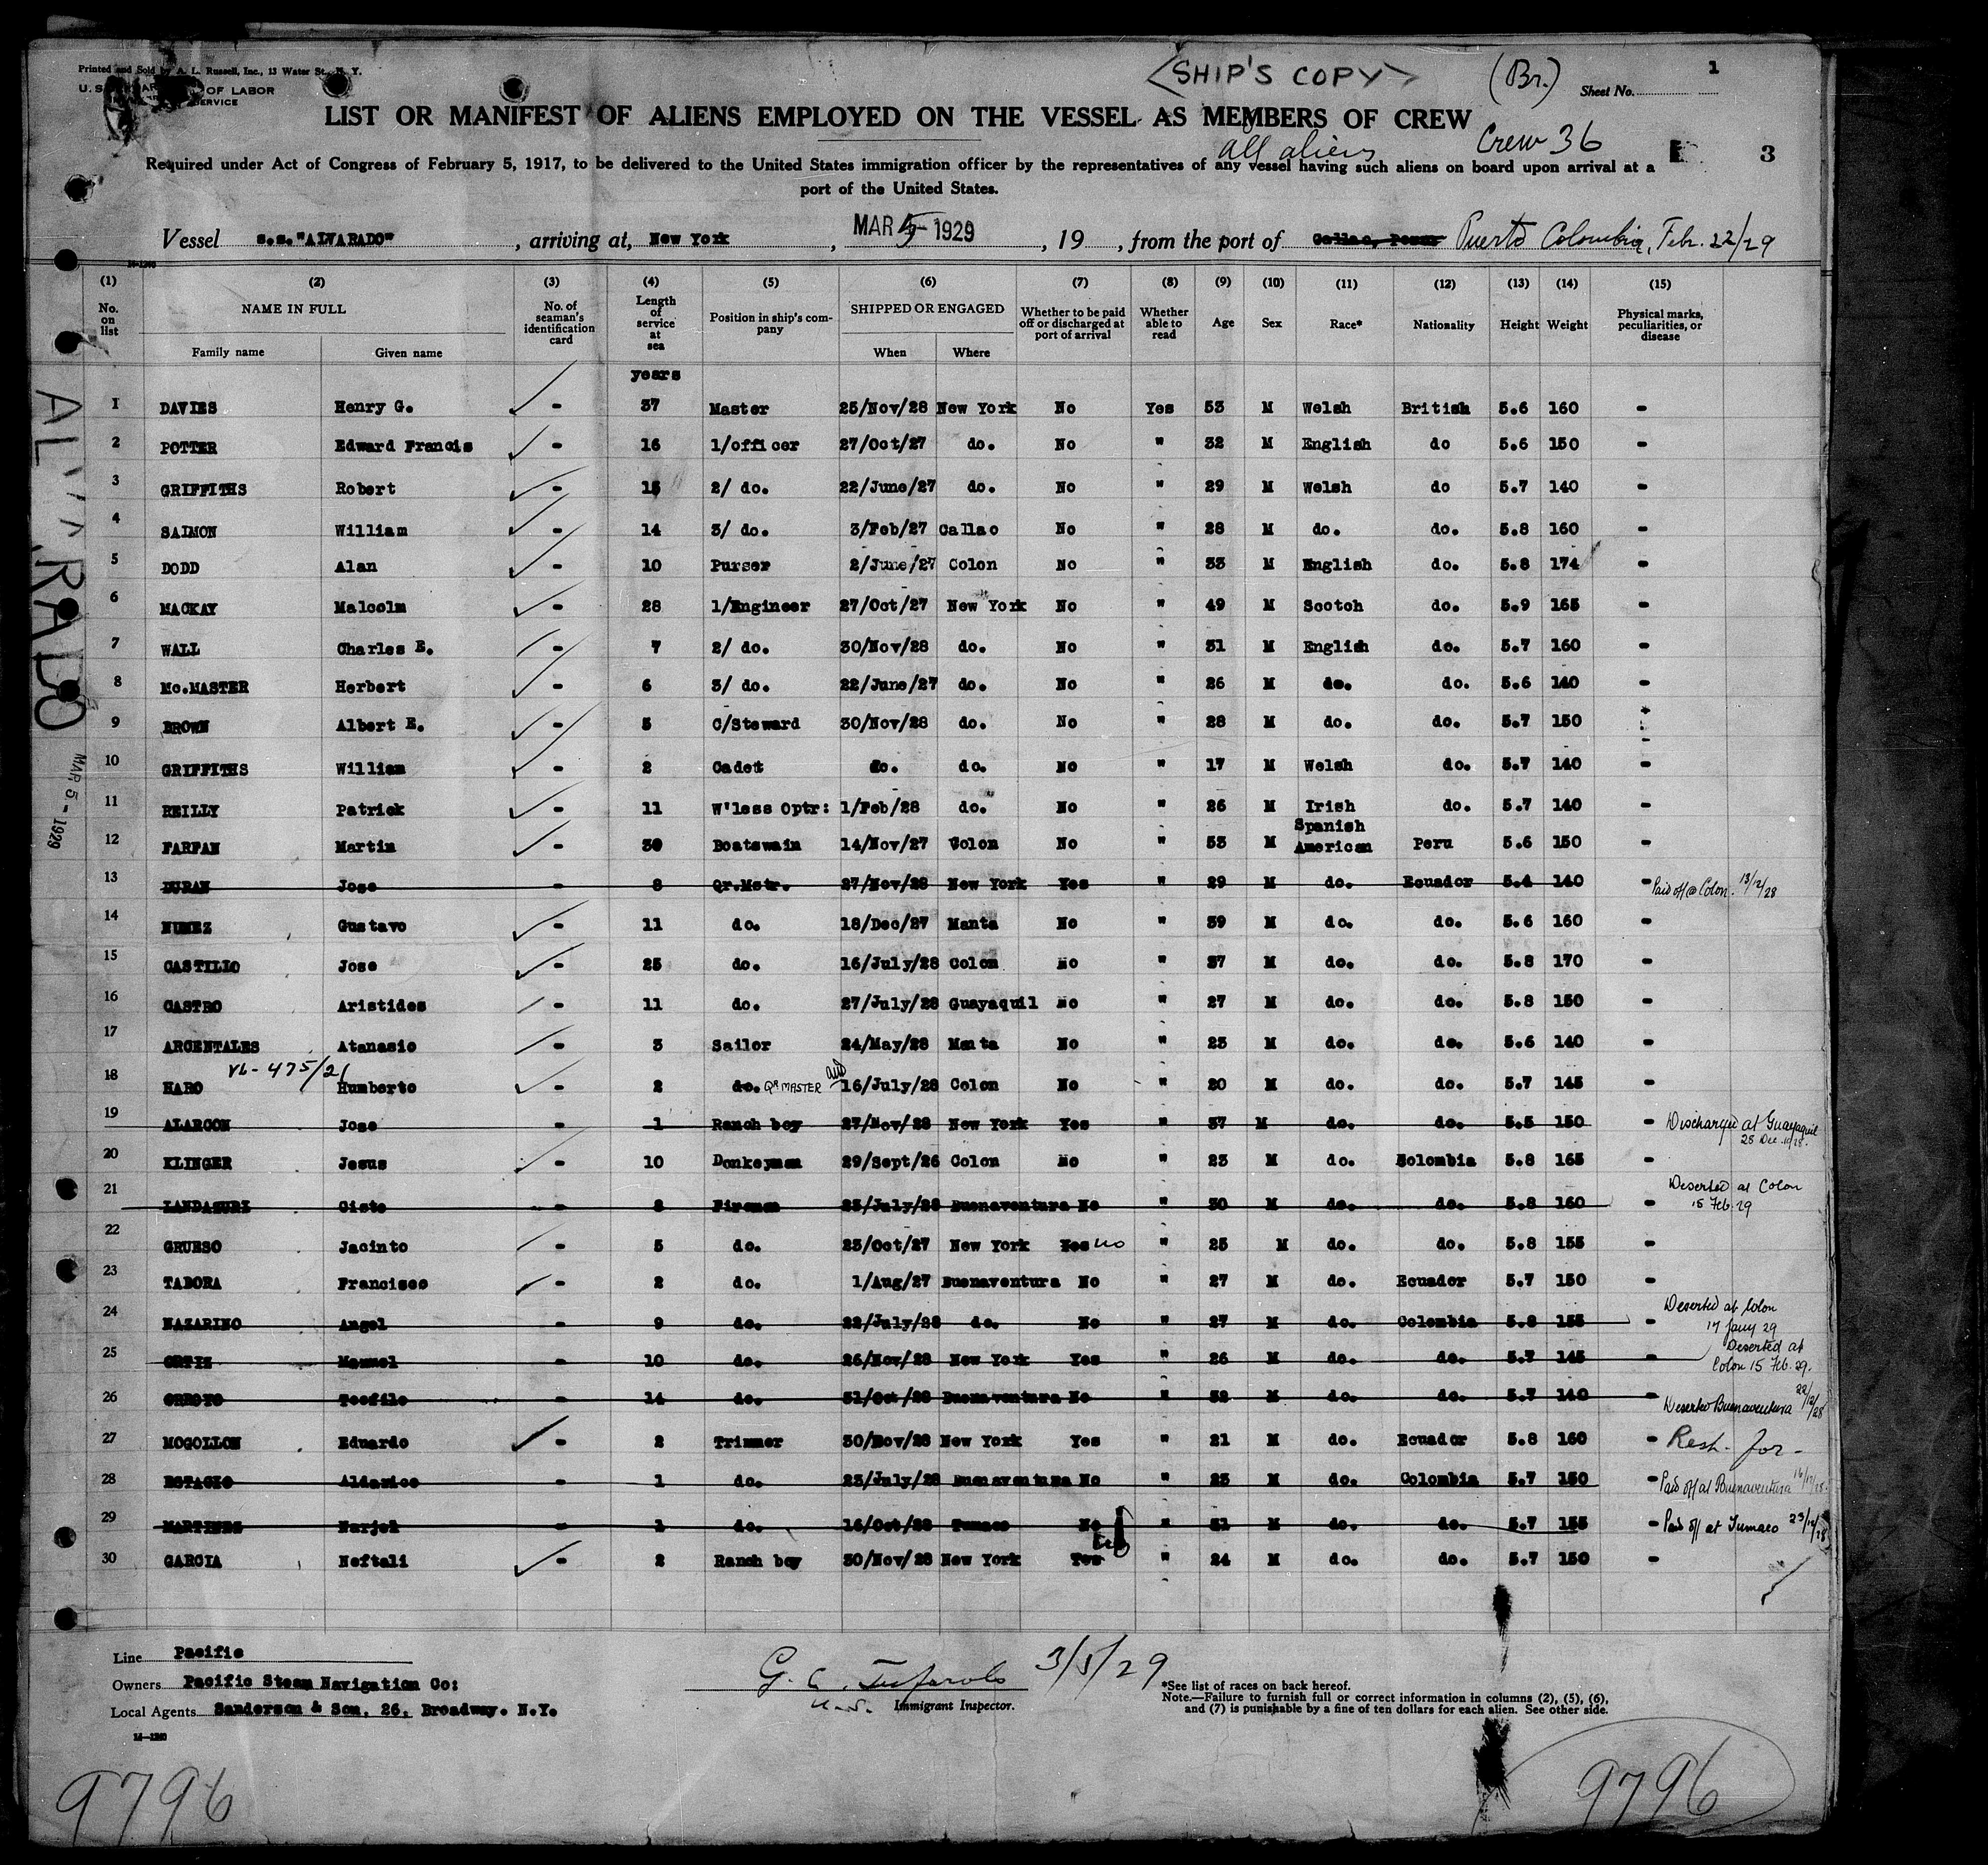 Printed and Sold by A. L. Russell, Inc., 13 Water St., N. Y.
<SHIP'S COPY>
(Br.)
Sheet No. 1
U. S. OF LABOR
SERVICE
LIST OR MANIFEST OF ALIENS EMPLOYED ON THE VESSEL AS MEMBERS OF CREW
all aliens
Crew 36
Required under Act of Congress of February 5, 1917, to be delivered to the United States immigration officer by the representatives of any vessel having such aliens on board upon arrival at a
3
port of the United States.
Vessel s.s."ALVARADO", arriving at, New York, MAR 5- 1929, 19 , from the port of Callao, Peru Puerto Colombia, Febr. 22/29
(1) (2) (3) (4) (5) (6) (7) (8) (9) (10) (11) (12) (13) (14) (15)
No. on list
NAME IN FULL
Family name Given name
No. of seaman's identification card
Length of service at sea
Position in ship's company
SHIPPED OR ENGAGED
When Where
Whether to be paid off or discharged at port of arrival
Whether able to read
Age Sex Race* Nationality Height Weight
Physical marks, peculiarities, or disease
years
1 DAVIES Henry G. - 37 Master 25/Nov/28 New York No Yes 53 M Welsh British 5.6 160 -
2 POTTER Edward Francis - 16 1/officer 27/Oct/27 do. No " 32 M English do 5.6 150 -
3 GRIFFITHS Robert - 15 2/ do. 22/June/27 do. No " 29 M Welsh do 5.7 140 -
4 SAIMON William - 14 3/ do. 3/Feb/27 Callao No " 28 M do. do. 5.8 160 -
5 DODD Alan - 10 Purser 2/June/27 Colon No " 33 M English do. 5.8 174 -
6 MACKAY Malcolm - 28 1/Engineer 27/Oct/27 New York No " 49 M Scotch do. 5.9 165 -
7 WALL Charles E. - 7 2/ do. 30/Nov/28 do. No " 31 M English do. 5.7 160 -
8 Mc.MASTER Herbert - 6 3/ do. 22/June/27 do. No " 26 M do. do. 5.6 140 -
9 BROWN Albert E. - 5 C/Steward 30/Nov/28 do. No " 28 M do. do. 5.7 150
10 GRIFFITHS William - 2 Cadet do. do. No " 17 M Welsh do. 5.7 140 -
11 REILLY Patrick - 11 W'less Optr: 1/Feb/28 do. No " 26 M Irish do. 5.7 140 -
12 FARFAN Martin - 30 Boatswain 14/Nov/27 Colon No " 53 M Spanish American Peru 5.6 150 -
13 DURAN Jose - 8 Qr.Mstr. 27/Nov/28 New York Yes " 29 M do. Ecuador 5.4 140 - Paid off @ Colon. 13/12/28
14 NUNEZ Gustavo - 11 do. 18/Dec/27 Manta No " 39 M do. do. 5.6 160 -
15 CASTILLO Jose - 25 do. 16/July/28 Colon No " 37 M do. do. 5.8 170 -
16 CASTRO Aristides - 11 do. 27/July/28 Guayaquil No " 27 M do. do. 5.8 150 -
17 ARGENTALES Atanasio - 3 Sailor 24/May/28 Manta No " 23 M do. do. 5.6 140 -
475/21
18 HARO Humberto - 2 do. QR MASTER 16/July/28 Colon No " 20 M do. do. 5.7 145 -
19 ALARCON Jose - 1 Ranch boy 27/Nov/28 New York Yes " 37 M do. do. 5.5 150 - Discharged at Guayaquil
25 Dec. 1928.
20 KLINGER Jesus - 10 Donkeyman 29/Sept/26 Colon No " 23 M do. Colombia 5.8 165 -
21 LANDAZURI Cisto - 8 Fireman 23/July/28 Buenaventura No " 30 M do. do. 5.8 160 - Deserted at Colon
15 Feb. 29
22 GRUESO Jacinto - 5 do. 23/Oct/27 New York Yes no " 25 M do. do. 5.8 155 -
23 TABORA Francisco - 2 do. 1/Aug/27 Buenaventura No " 27 M do. Ecuador 5.7 150 -
24 NAZARINO Angel - 9 do. 22/July/28 do. No " 27 M do. Colombia 5.8 155 - Deserted at Colon
17 Jany 29
25 ORTIZ Manuel - 10 do. 26/Nov/28 New York Yes " 26 M do. do. 5.7 145 - Deserted at
Colon 15 Feb. 29.
26 Teofilo - 14 do. 31/Oct/28 Buenaventura No " 32 M do. do. 5.7 140 - Deserted Buenaventura 22/12/28
27 MOGOLLON Eduardo - 2 Trimmer 30/Nov/28 New York Yes " 21 M do. Ecuador 5.8 160 - Resh. for -
28 ESTACIO - 1 do. 23/July/28 Buenaventura No " 23 M do. Colombia 5.7 150 - Paid off at Buenaventura
29 MARTINEZ - 1 do. 16/Oct/28 Tumaco No " 21 M do. do. 5.7 155 - Paid off at Tumaco 23/12/28
30 GARCIA Neftali - 2 Ranch boy 30/Nov/28 New York Yes " 24 M do. do. 5.7 150 -
ALVARADO
MAR 5-1929
Line Pacific
Owners Pacific Steam Navigation Co:
Local Agents Sanderson & Son, 26, Broadway. N.Y.
3/5/29
U.S. Immigrant Inspector.
*See list of races on back hereof.
Note.—Failure to furnish full or correct information in columns (2), (5), (6),
and (7) is punishable by a fine of ten dollars for each alien. See other side.
14—1240
9796
9796